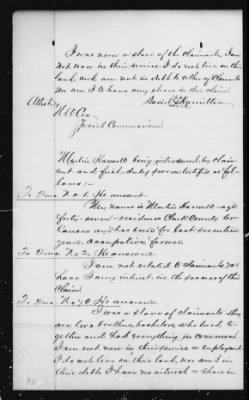 I was never a slave of the claimants I am
not now in their service I do not live on their
land and am not in debt to either of claimants
nor am I to have any share in this claim
David Hamilton
Attest
Special Commissioner
Martin Harrell being introduced by claim
ant and first duly sworn testifies as fol
lows:-
To Inty No 1 He answered.
My name is Martin Harrell - age
forty seven - residence Clark County Ar
kansas and has been for last seventeen
years. occupation farmer.
To Inty No 2 He answered
I am not related to claimants nor
have I any interest in the success of this
Claim
To Inty No 30 He answered
I was a slave of claimants they
are two brothers, bachelors, who lived to
gether and had everything in common
I am not now in their service or employment
I do not live on their land, nor am I in
their debt I have no interest or share in